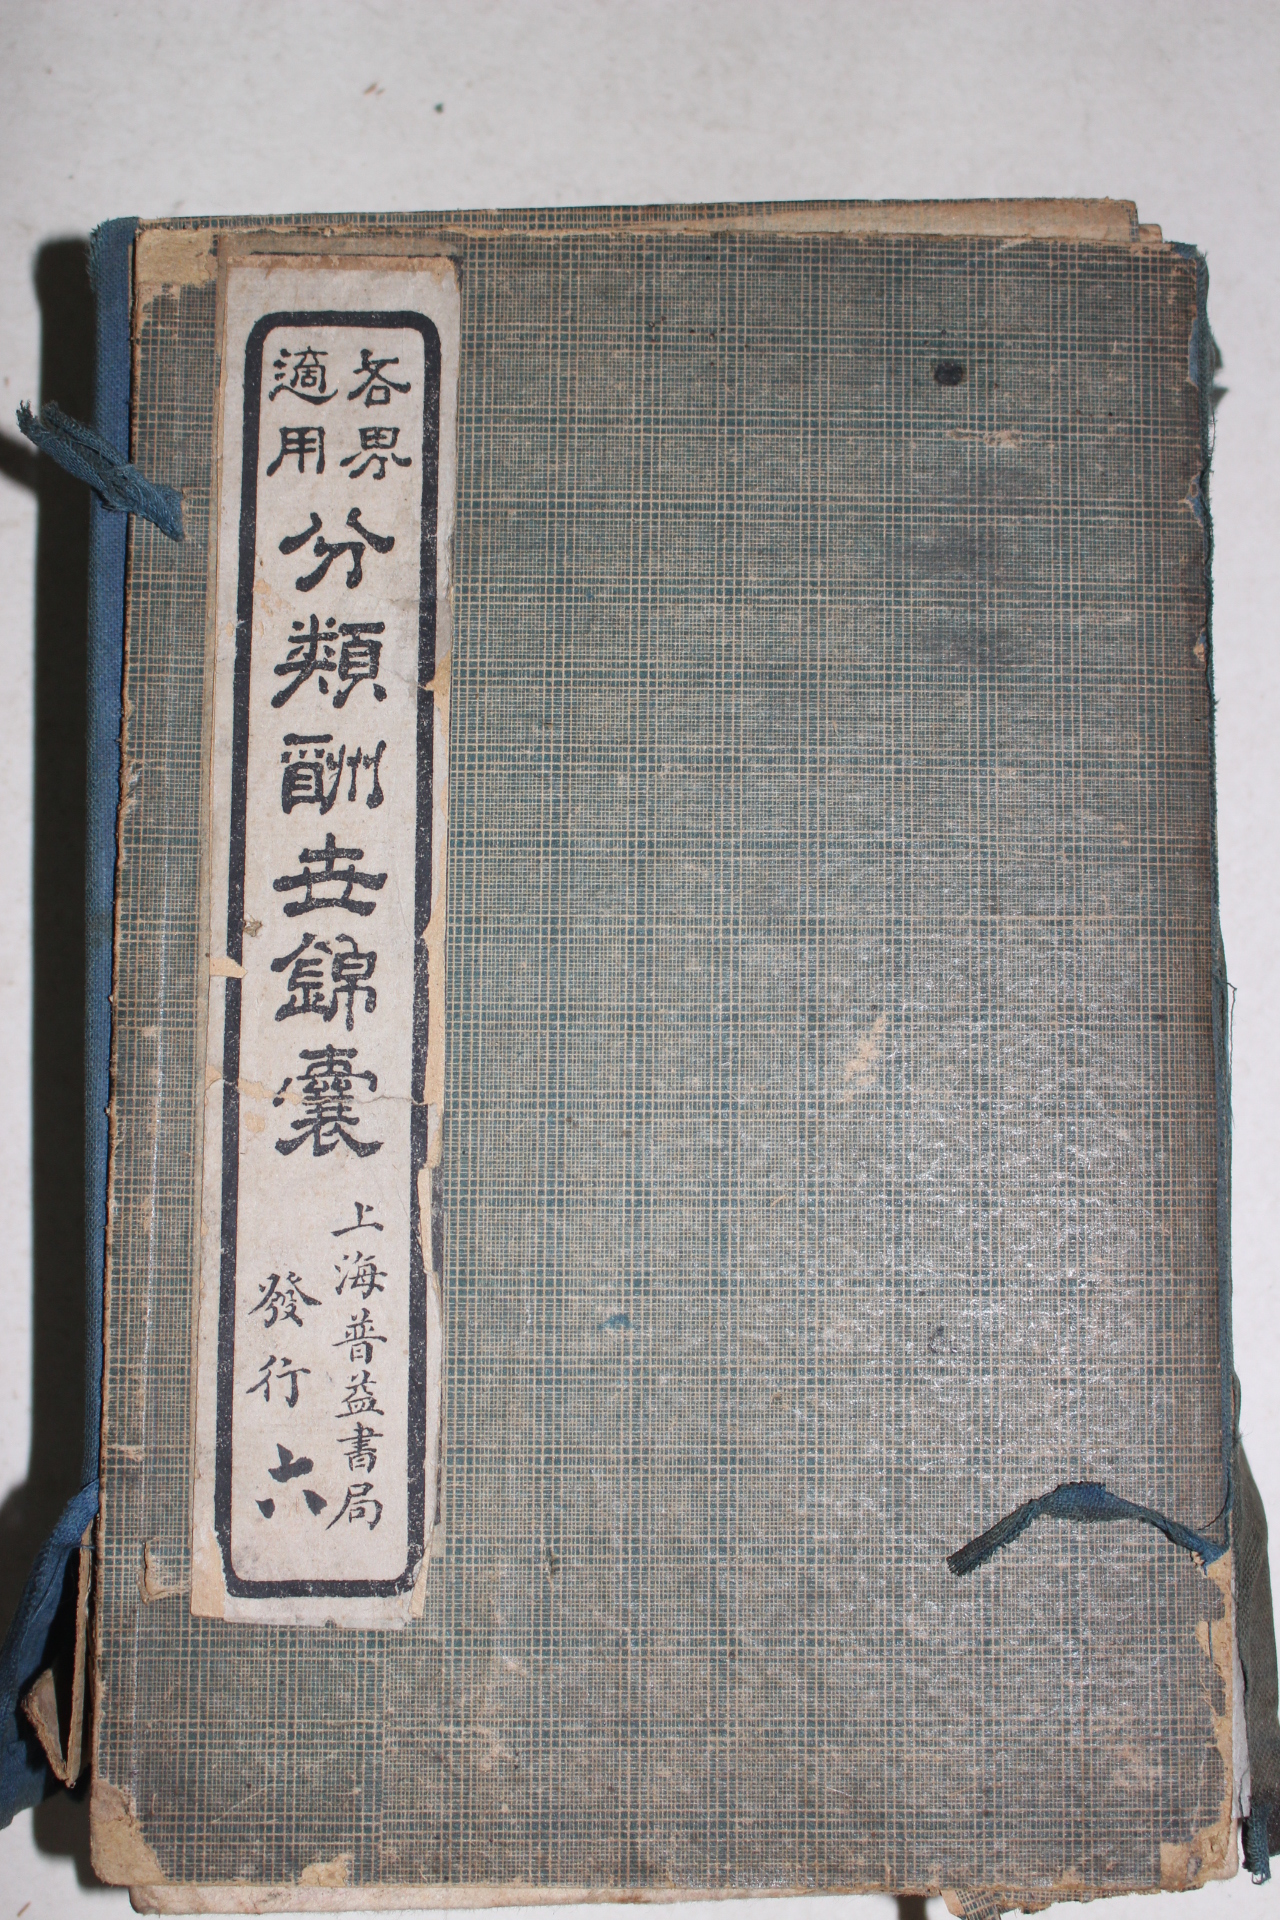 各界
適用
分類酬世錦囊
上海普益書局
發行
六